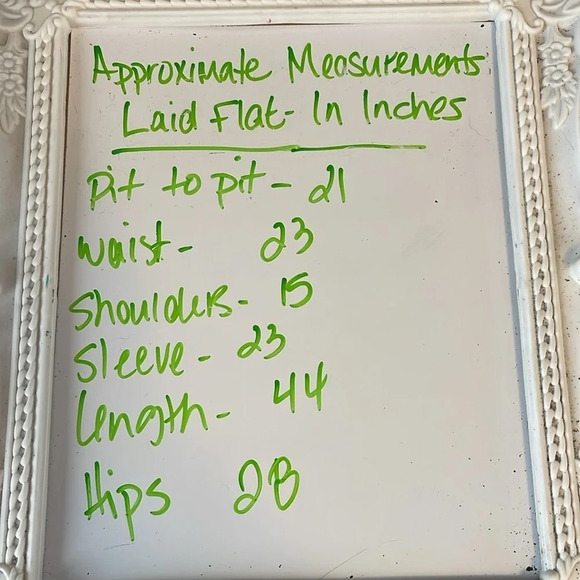 Approximate Measurements
Laid Flat- In Inches
pit to pit - 21
waist - 23
Shoulders - 15
Sleeve - 23
Length - 44
Hips 28